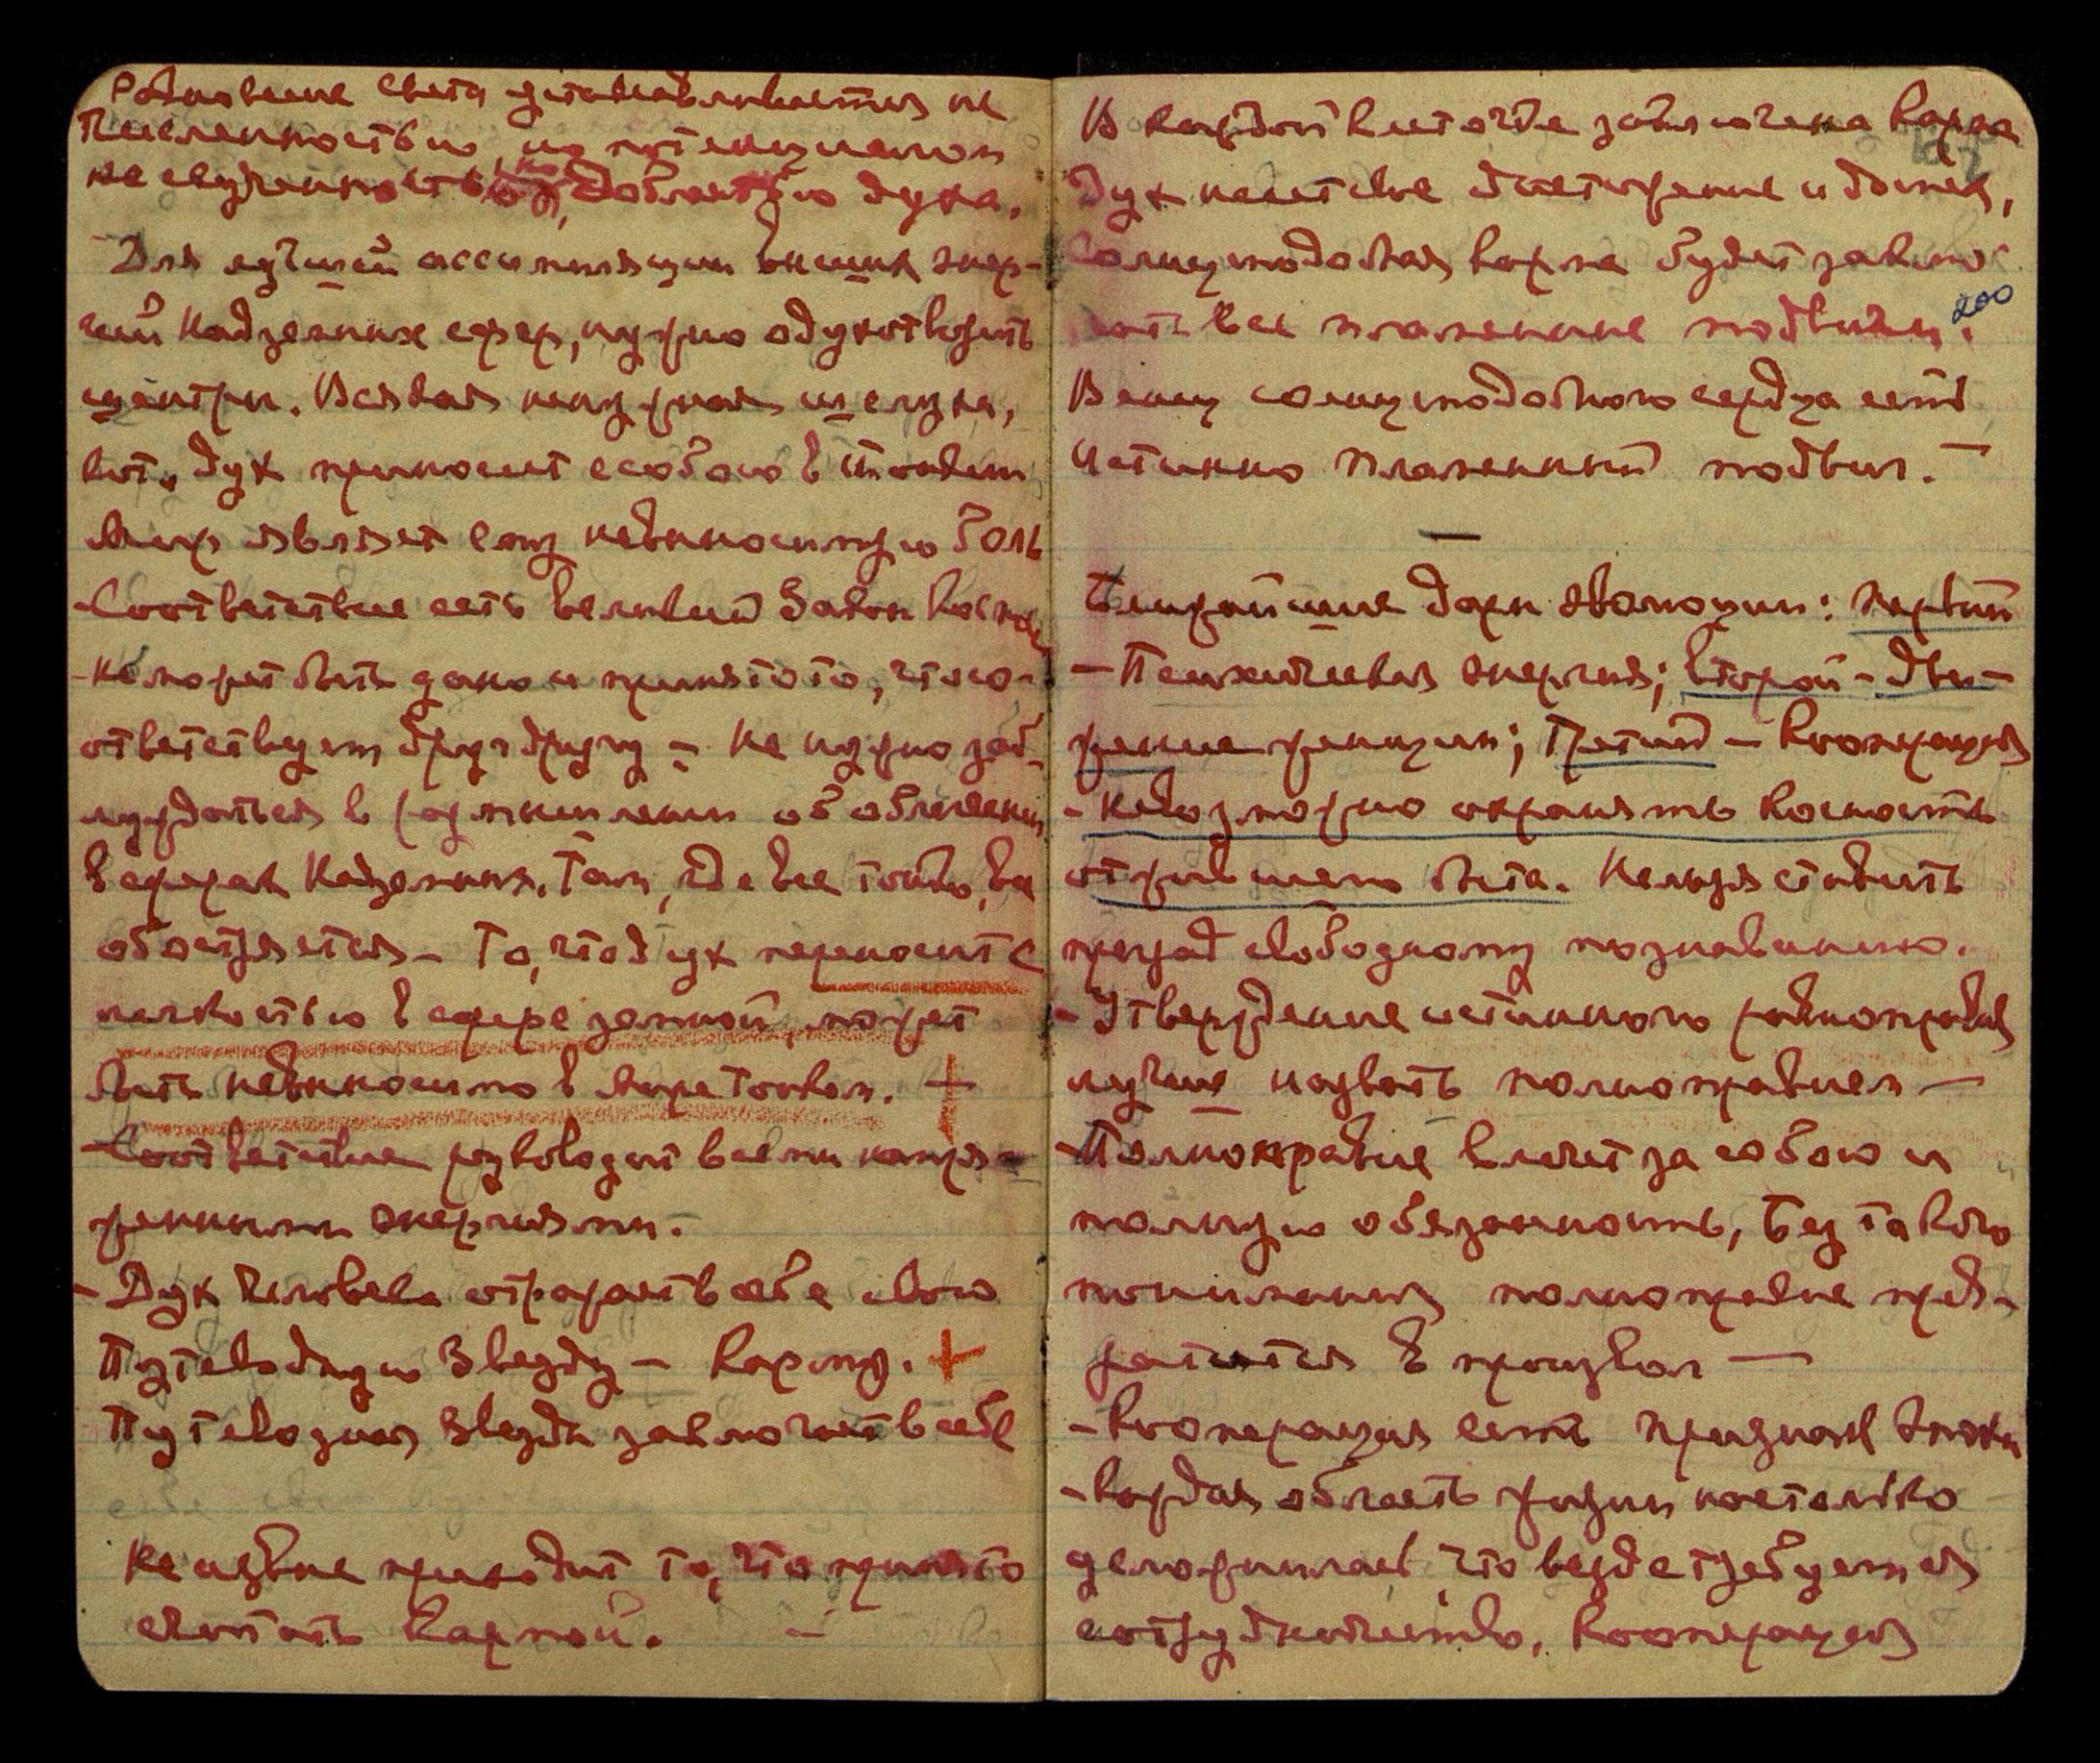 Равновесие света устанавливается не
численностью, но потенциалом
не скученностью, но доблестью духа.
Для лучшей ассимиляции высших энер-
гий Надземных сфер, нужно одухотворить
центры. Всякая ненужная шелуха,
кот. дух приносит с собою в Тонкий
Мир являет ему невыносимую боль
- Соответствие есть великий Закон Космоса
- не может быть дано и принято то, что со-
ответствует друг другу - Не нужно заб-
луждаться в размышлении об облегчении
в сферах Надземных. Там, где все тонко, все
обостряется - То, что дух переносит с
легкостью в сфере земной, может
быть невыносимо в Мире Тонком. +
- Соответствие руководит всеми напря-
женными энергиями.
- Дух человека отражает в себе свою
Путеводную Звезду - Карму. +
Путеводная Звезда заключает в себе
Не извне приходит то, что принято
считать Кармой. -
В каждой клеточке заключена Карма
107
Дух несет свое достижение и доспех,
Солнцеподобная карма будет заклю-
200
чать все пламенные подвиги.
Венец солнцеподобного сердца есть
Истинно пламенный подвиг. -
—
Ближайшие дары эволюции: первый
- Психическая энергия; второй - дви-
жение женщин; Третий - Кооперация
- Невозможно охранять косность
отжившего быта. Нельзя ставить
преград свободному познаванию.
- Утверждение истинного равноправия
лучше назвать полноправием -
- Полноправие влечет за собою и
полную обязанность, Без такого
понимания полноправие прев-
ратится в произвол —
- Кооперация есть признак Эпохи
- Каждая область жизни настолько
усложнилась, что везде требуется
сотрудничество, Кооперация